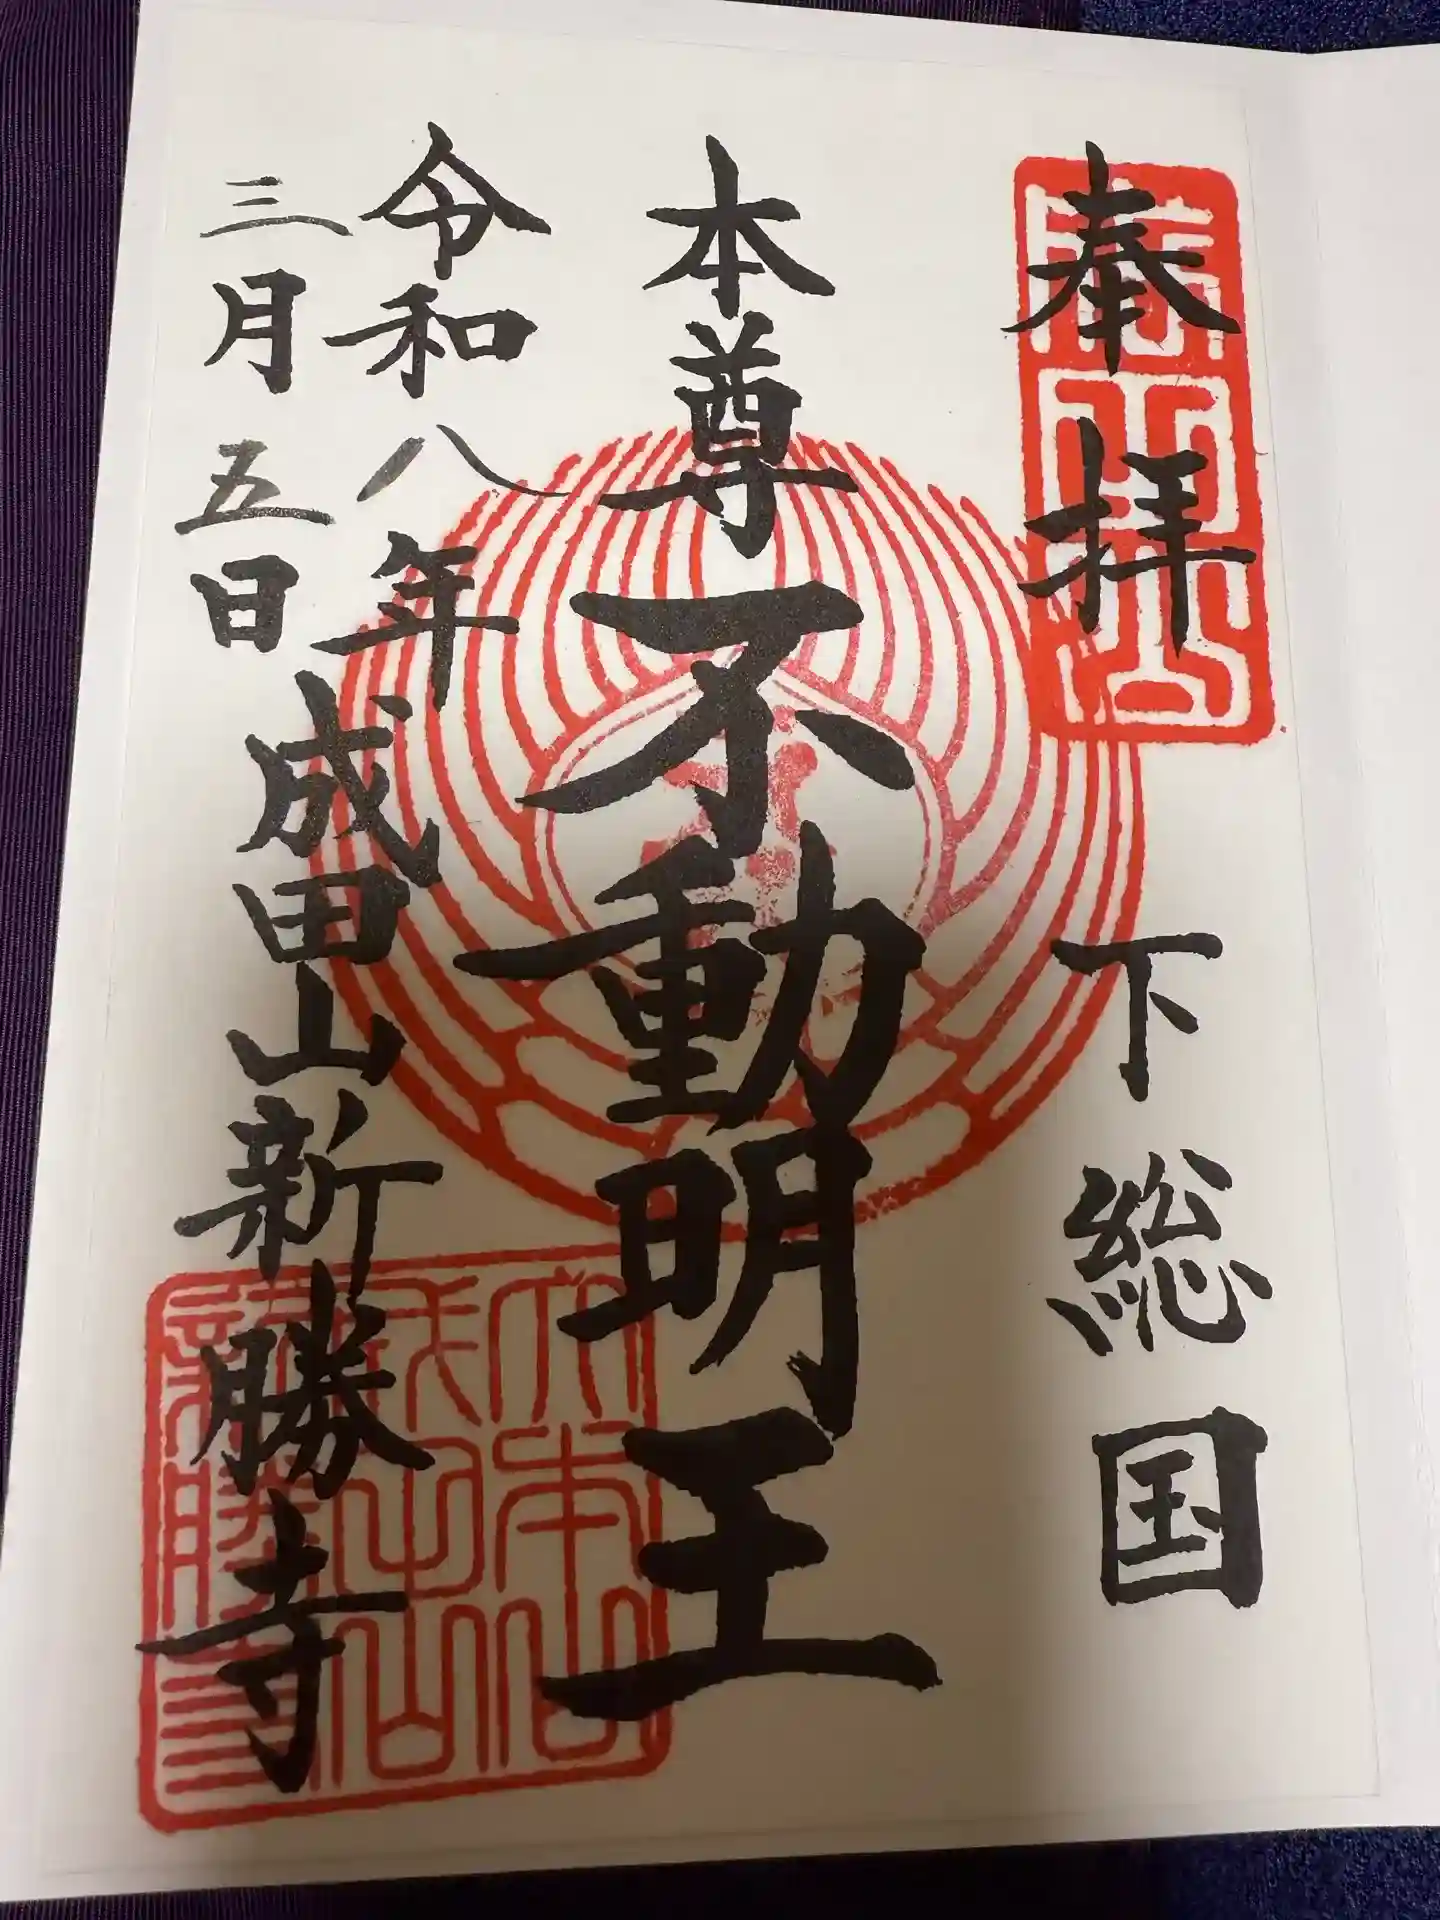 奉拝
下総国
本尊不動明王
令和八年
三月五日
成田山新勝寺